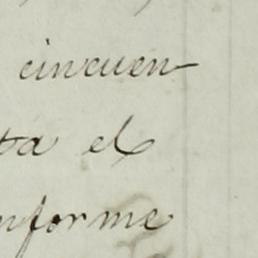 cincuen
ta el
nforme